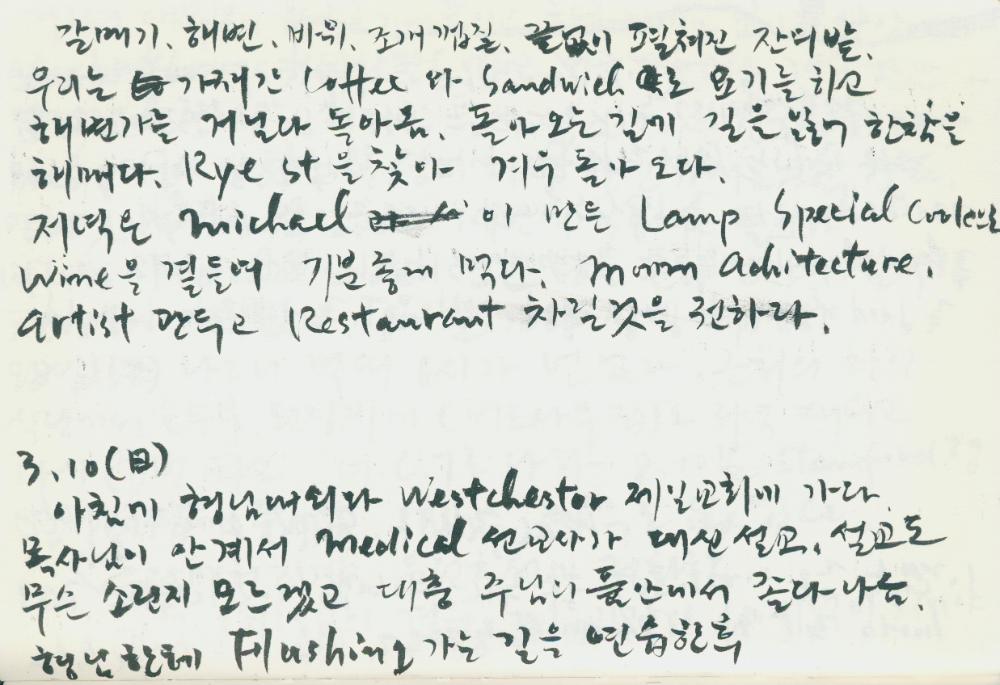 갈매기, 해변, 바위, 조개껍질, 끝없이 펼쳐진 잔디밭,
우리는 가져간 Coffee 와 Sandwich 로 요기를 하고
해변가를 거닐다 돌아옴. 돌아오는 길에 길을 잃어 한참을
헤매다. Rye st 을 찾아 겨우 돌아오다.
저녁은 Michael 이 만든 Lamp Special
Wine을 곁들여 기분좋게 먹다.
artist 관두고 Restaurant 차릴것을 권하다.
3.10(日)
아침에 형님내외와 Westchestor 제일교회에 가다
목사님이 안계서 Medical 선교사가 대신 설교, 설교도
무슨 소린지 모르겠고 대충 주님의 품안에서 졸다 나옴.
형님한테 Flushing 가는 길을 연습한후